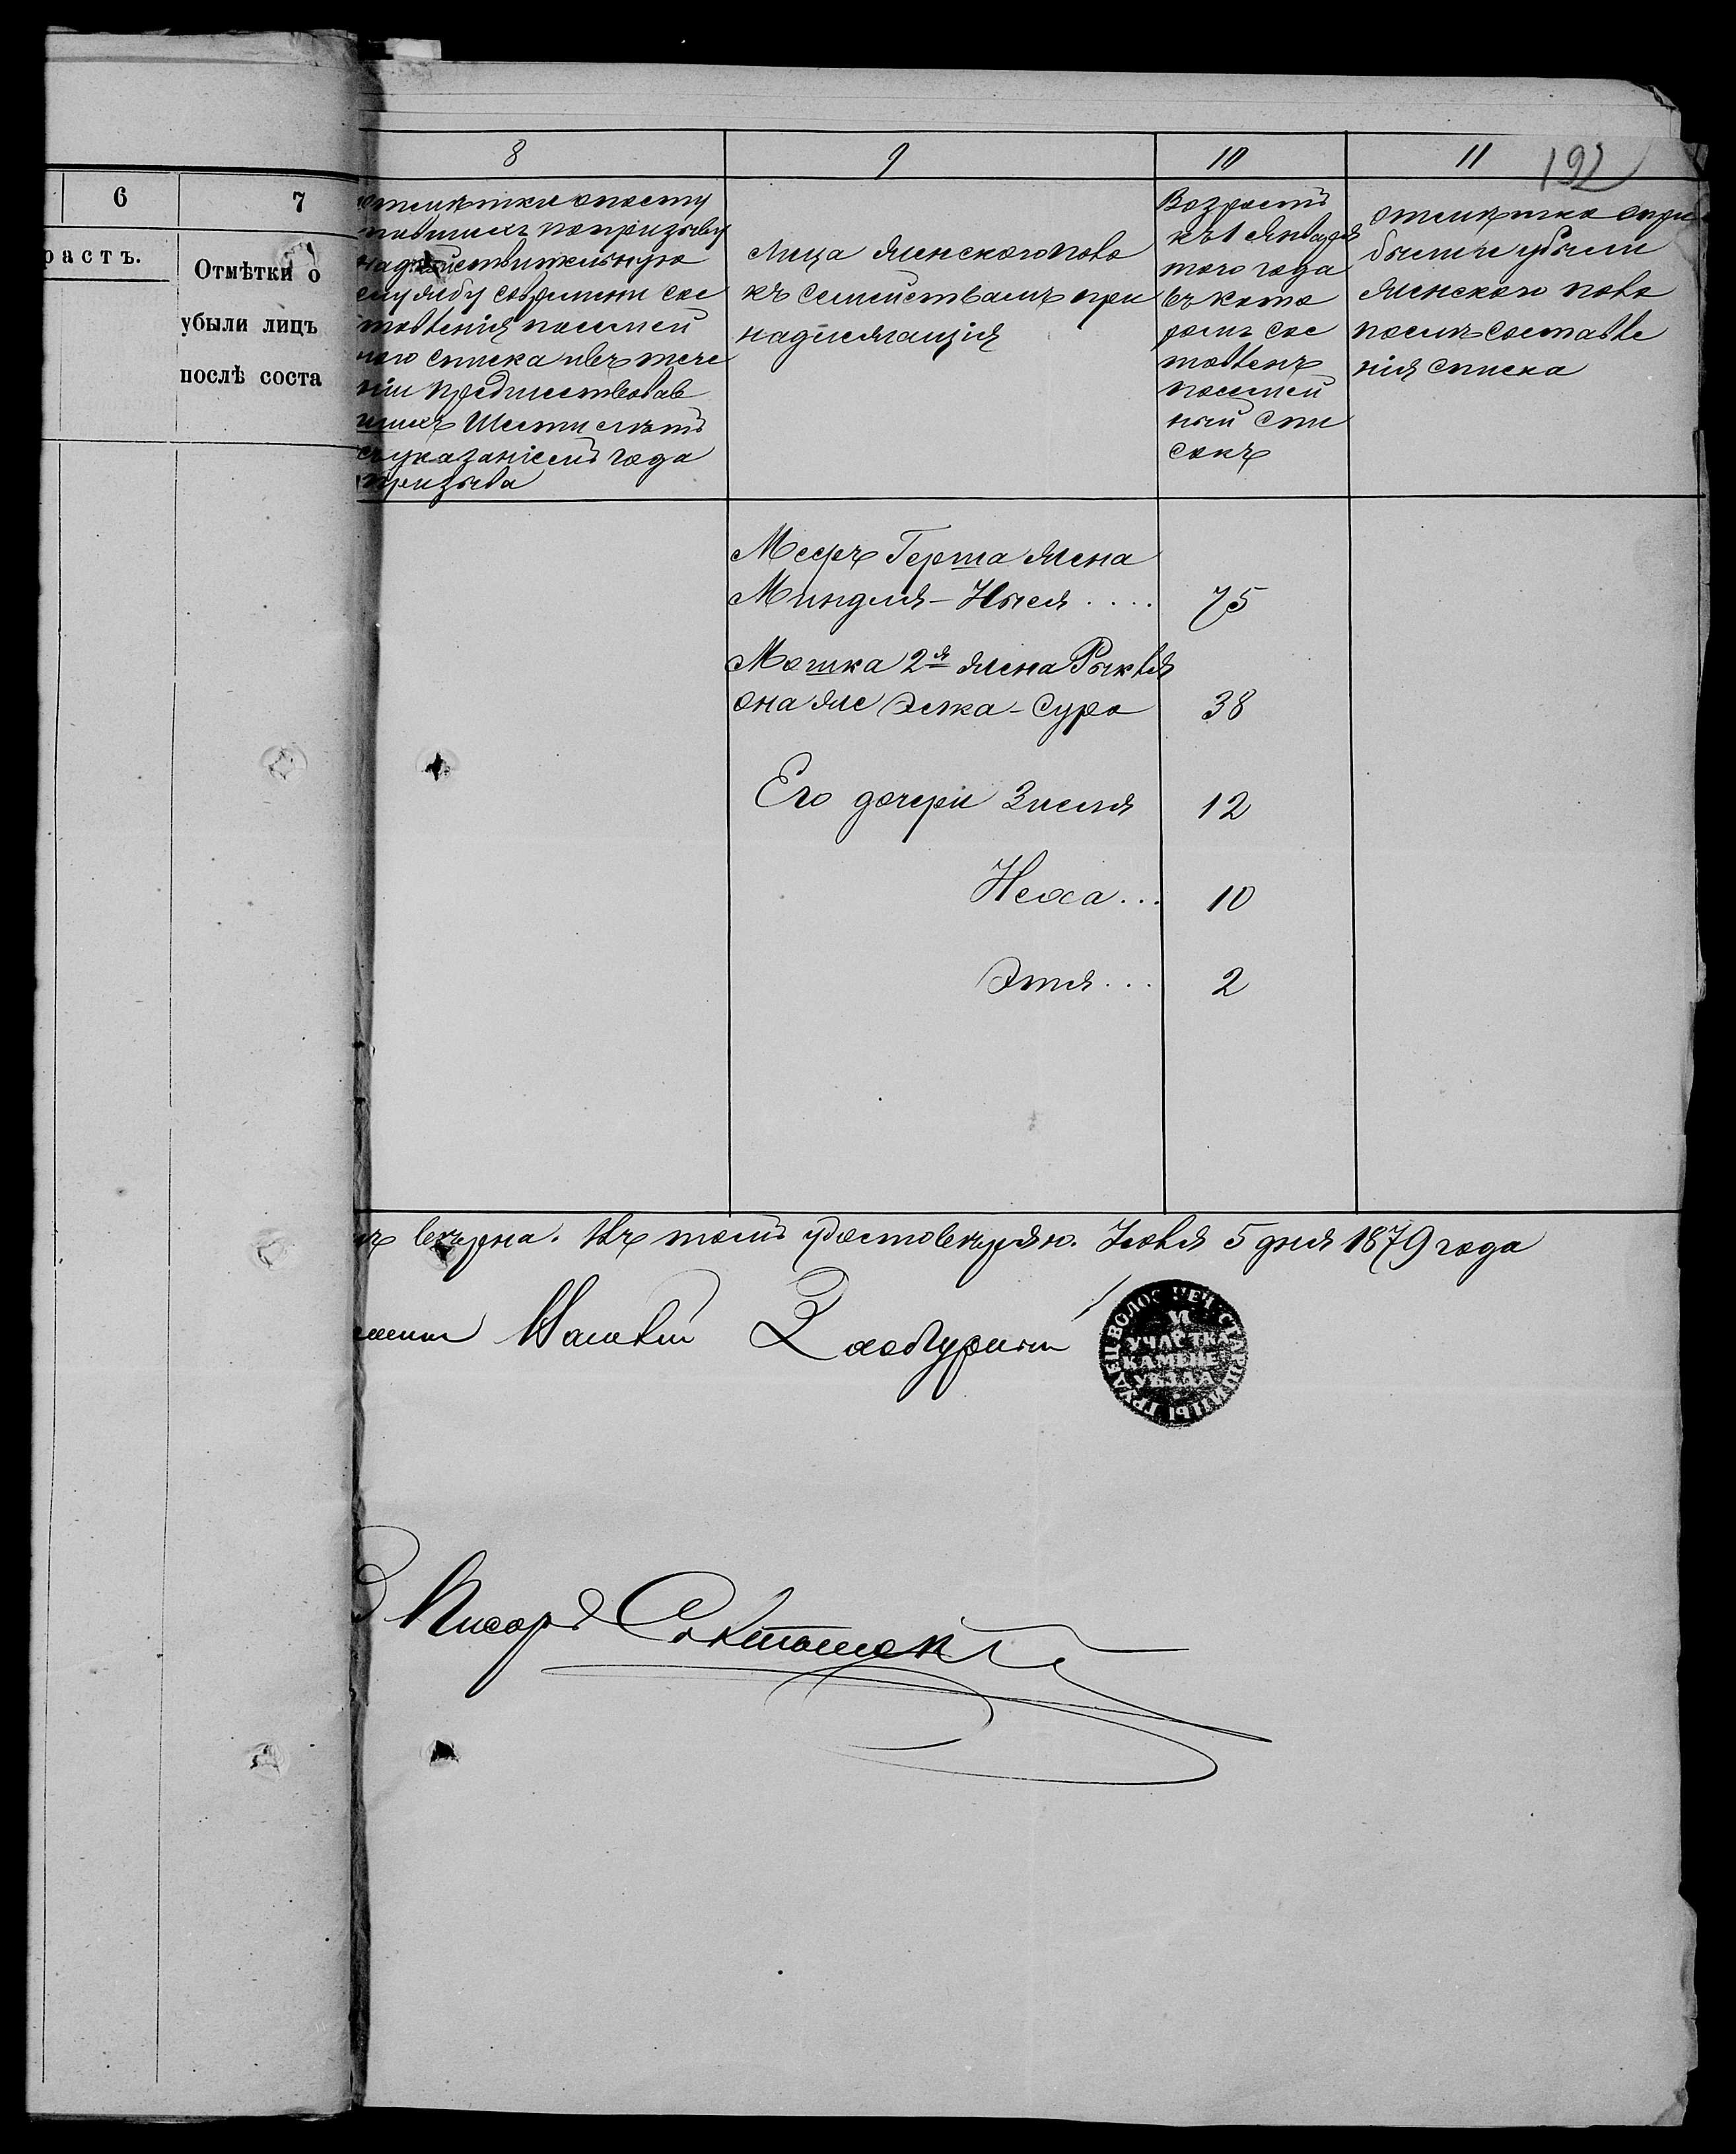 6
7
растъ.
Отмѣтки о
убыли лицъ
послѣ соста
8
9
10
11
192
отмѣтки о посту
пившихъ попризыву
на дѣйствительную
службу современи сос
тавленія посемей
наго списка ивъ тече
ніи предшествовав
шихъ Шести лѣтъ
съ указаніемъ года
призыва
Лица женскаго пола
къ семействамъ при
надлежащія
Возрастъ
къ 1 Января
того года
въ кото
ромъ сос
тавленъ
посемей
ный спи
сокъ
отмѣтка опри
были и убыли
женскаго пола
послѣ составле
нія списка
Герша жена
Миндля- .... 75
Мошка 2я жена Рывля
она же Элка-Сура 38
Его дочери Зисля 12
Неха... 10
Этля... 2
вѣрна. Въ томъ удостовѣряю. Іюля 5 дня 1879 года
ВОЛОС СТАРШИНЫ
И
УЧАСТКА
КАМЕНЕ
УѢЗДА
Писарь